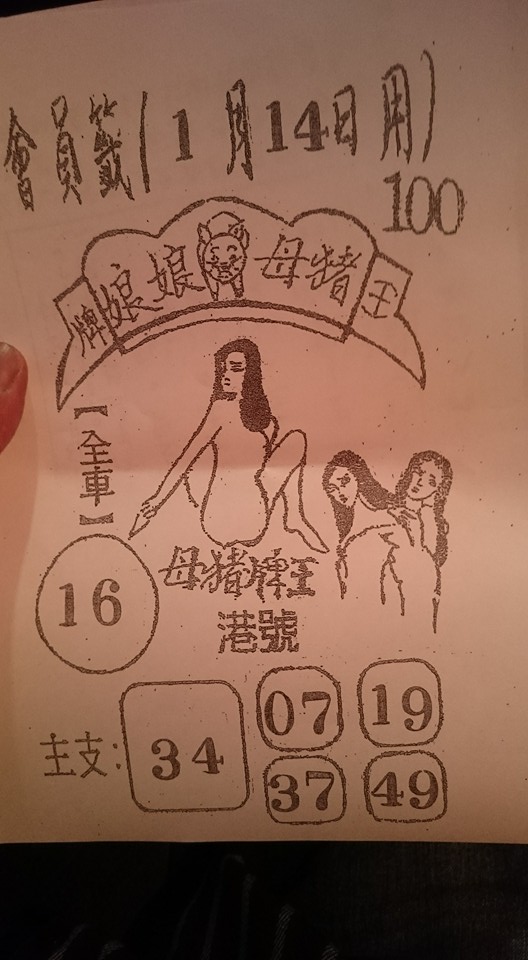 會員籤(1月14日用)
100
牌娘娘母猪王
【全車】
16
母猪牌王
港號
主支:34
07 19
37 49